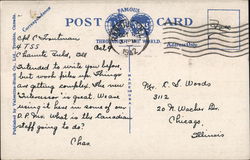 FAMOUS
POST CARD
THROUGHOUT THE WORLD
Correspondence
Address Only
1942
4 TSS
Chanute Field, Ill
Oct 9
Intended to write you before,
but work piles up. Things
are getting complex. The new
is great. We are
using it here in some of our
What is the Canadian
staff going to do?
Chas
Mr. R. S. Woods
3112
20 N. Wacker Dr.
Chicago,
Illinois